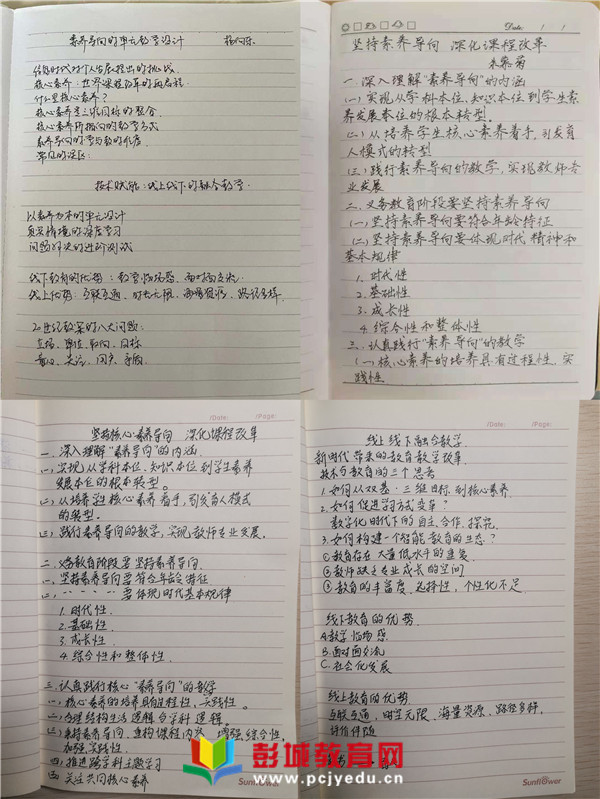 素养导向的单元教学设计
信息时代对个人发展提出的挑战
核心素养：世界课程改革的共同
什么是核心素养？
核心素养是三维目标的整合
核心素养所指向的教学方式
素养导向的学与教的
常见的误区：
技术赋能：线上线下的融合教学
以素养为本的单元设计
真实情境的深度学习
问题解决的进阶测试
线下教育的优势：教学临场感，面对面交流
线上优势：互联互通，时空无限，海量资源，路径多样
20世纪教案的八大问题：
立场、单位、导向、目标
Date: / /
坚持素养导向 深化课程改革
一、深入理解“素养导向”的内涵
(一)实现从学科本位、知识本位到学生素
养发展本位的根本转型。
(二)从培养学生核心素养着手,引发育
人模式的转型
(三)践行素养导向的教学,实现教师专
业发展
二、义务教育阶段要坚持素养导向
(一)坚持素养导向要符合年龄特征
(二)坚持素养导向要体现时代精神和
基本规律
1. 时代性
2. 基础性
3. 成长性
4. 综合性和整体性
三、认真践行“素养导向”的教学
(一)核心素养的培养具有过程性、实
践性
/Date: /Page:
坚持核心素养导向 深化课程改革
一、深入理解“素养导向”的内涵
(一)实现从学科本位、知识本位到学生素养
发展本位的根本转型。
(二)从培养学生核心素养着手,引发育人模式
的转型。
(三)践行素养导向的教学,实现教师专业发展。
二、义务教育阶段要坚持素养导向
(一)坚持素养导向要符合年龄特征
(二)、、、、要体现时代基本规律
1. 时代性
2. 基础性
3. 成长性
4. 综合性和整体性
三、认真践行核心“素养导向”的教学
(一)核心素养的培养具有过程性、实践性。
(二)合理结构生活逻辑与学科逻辑。
(三)秉持素养导向,重构课程内容,增强综合性,
加强实践性
(四)推进跨学科主题学习
(五)关注共同核心素养
Sunflower
/Date: /Page:
线上线下融合教学
新时代带来的教育教学改革
技术与教育的三个思考
1. 如何从双基、三维目标到核心素养
2. 如何促进学习方式变革？
数字化时代下的自主、合作、探究
3. 如何构建一个智能教育的生态？
①教育存在大量低水平的重复
②教师缺乏专业成长的空间
③教育的丰富度、选择性、个性化不足
线下教育的优势
A.教学临场感
B.面对面交流
C.社会化发展
线上教育的优势
互联互通,时空无限,海量资源,路径多样,
评价伴随
Sunflower
彭城教育网
www.pcjyedu.cn